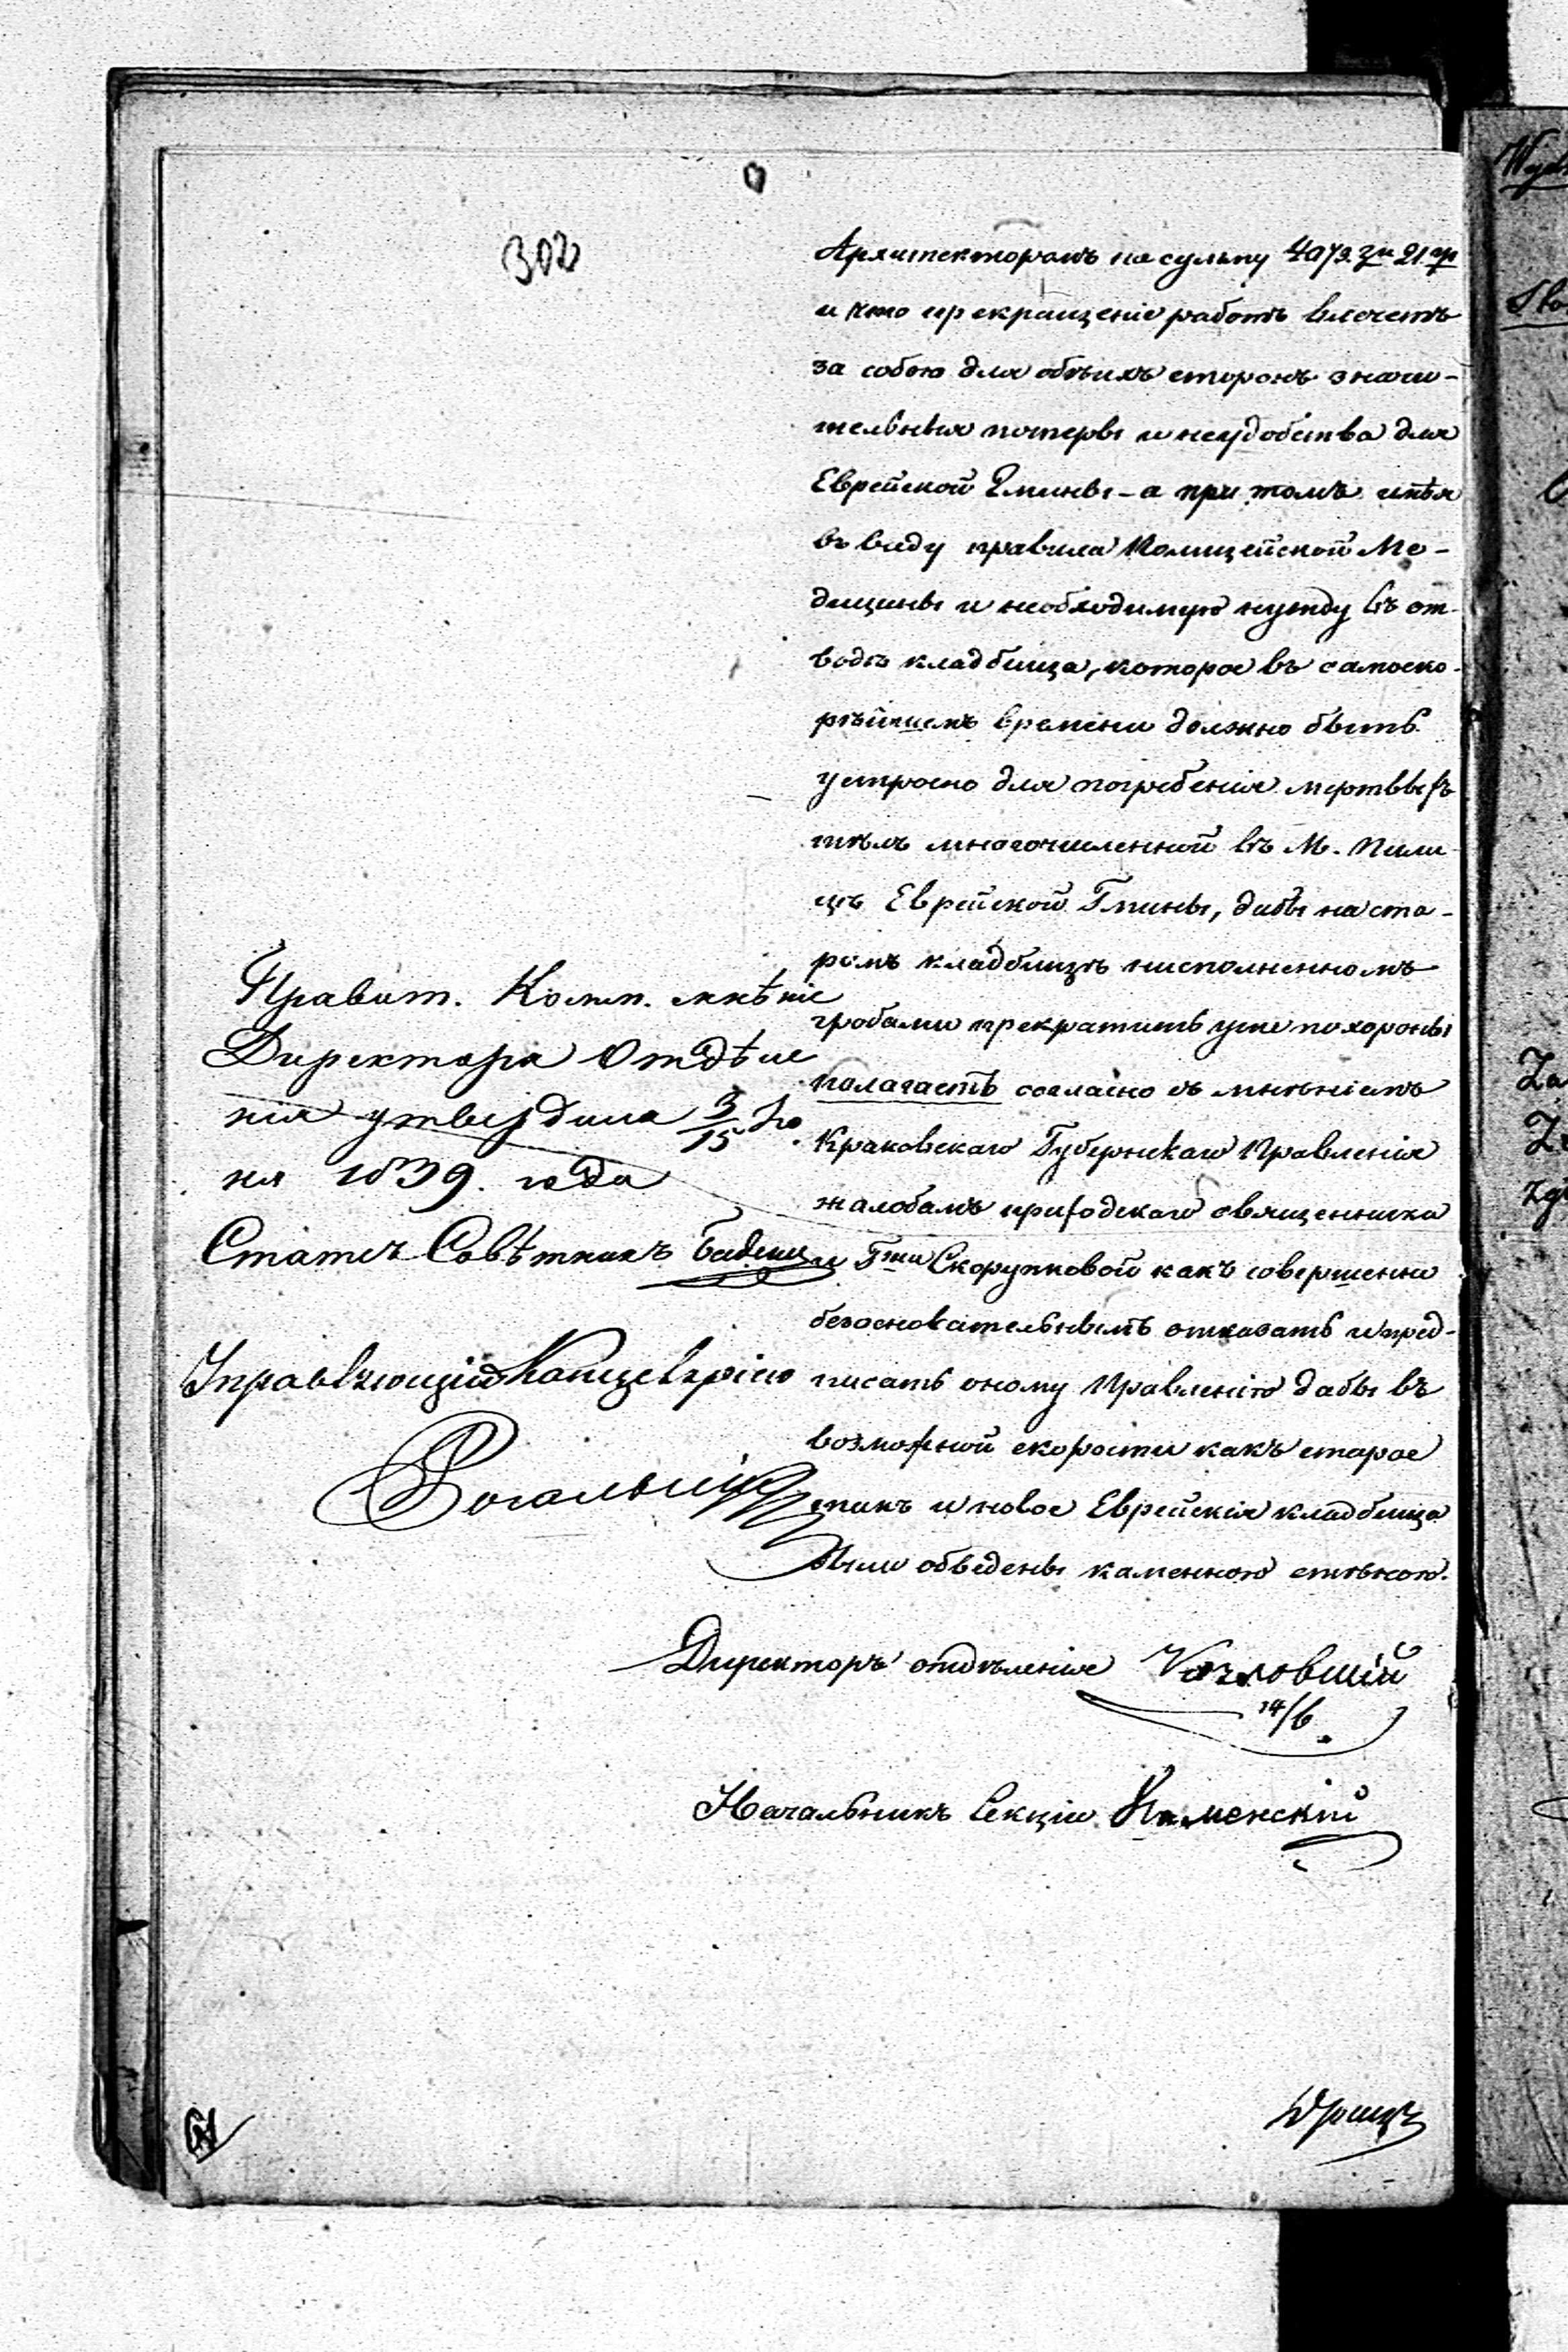 302
Архитекторомъ на сумму 4073. зл 21 гр
и что прекращеніе работъ влечетъ
за собою для обѣихъ сторонъ значи-
тельныя потеры и неудобства для
Еврейской Гмины - а при томъ имѣя
въ виду правила Полицейской Ме-
дицины и необходимую нужду въ от-
водѣ кладбища, которое въ самоско-
рѣйшемъ времени должно быть
устроено для погребенія мертвыхъ
тѣлъ многочисленной въ М. Пили
цѣ Еврейской Гмины, дабы на ста-
ромъ кладбищѣ исполненномъ
гробами прекратить уже похороны
полагаетъ согласно съ мнѣніемъ
Краковскаго Губернскаго Правленія
жалобамъ приходскаго священника
и Гжи Скорупковой какъ совершенно
безосновательнымъ отказать и пред-
писать оному Правленію дабы въ
возможной скорости какъ старое
такъ и новое Еврейскія кладбища
были обведены каменною стѣною.
Правит. Комм. мнѣніе
Директора Отдѣле
нія утвердила 3/15 Ію
ня 1839. года
Статск Совѣтникъ
Управляющій Канцеляріею
Директоръ отдѣленія Козловшій
14/6.
Начальникъ Секціи Каменскій